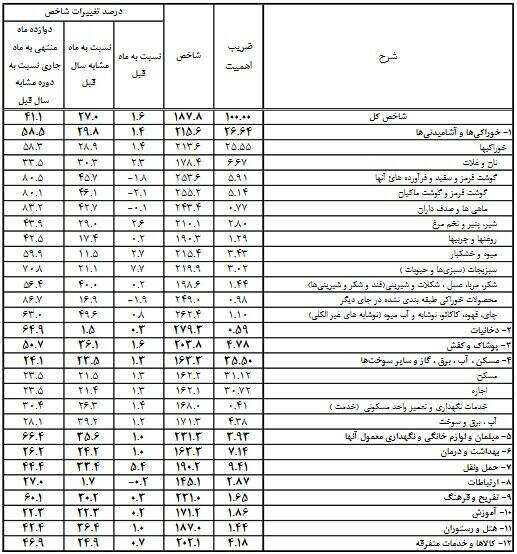 شرح	ضریب اهمیت	شاخص	درصد تغییرات شاخص
نسبت به ماه قبل	نسبت به ماه مشابه سال قبل	دوازده ماه منتهی به ماه جاری نسبت به دوره مشابه سال قبل
شاخص کل	۱۰۰.۰۰	۱۸۷.۸	۱.۶	۲۷.۰	۴۱.۱
۱- خوراکی‌ها و آشامیدنی‌ها	۲۶.۶۴	۲۱۵.۶	۱.۴	۲۹.۸	۵۸.۵
خوراکیها	۲۵.۵۵	۲۱۳.۶	۱.۴	۲۸.۹	۵۸.۳
نان و غلات	۶.۶۷	۱۷۸.۴	۲.۳	۳۰.۳	۳۳.۵
گوشت قرمز و سفید و فرآورده های آنها	۵.۹۱	۲۵۳.۶	-۱.۸	۴۵.۷	۸۰.۵
گوشت قرمز و گوشت ماکیان	۵.۱۴	۲۵۵.۲	-۲.۱	۴۶.۱	۸۰.۱
ماهی ها و صدف داران	۰.۷۷	۲۴۳.۴	-۰.۱	۴۲.۷	۸۳.۲
شیر، پنیر و تخم مرغ	۲.۸۰	۲۱۰.۱	۲.۶	۲۹.۰	۴۳.۹
روغنها و چربیها	۱.۲۹	۱۹۰.۳	۰.۲	۱۷.۴	۴۲.۵
میوه و خشکبار	۳.۴۳	۲۱۵.۴	۲.۷	۱۱.۵	۵۹.۹
سبزیجات (سبزی‌ها و حبوبات )	۳.۰۲	۲۱۹.۹	۷.۷	۲۱.۱	۷۰.۸
شکر، مربا، عسل ، شکلات و شیرینی(قند و شکر و شیرینی‌ها)	۱.۴۴	۱۹۸.۶	۰.۲	۴۰.۰	۵۶.۴
محصولات خوراکی طبقه بندی نشده در جای دیگر	۰.۹۸	۲۴۹.۰	-۱.۹	۱۶.۹	۸۶.۷
چای، قهوه، کاکائو، نوشابه و آب میوه (نوشابه های غیر الکلی)	۱.۱۰	۲۶۲.۴	۰.۸	۴۹.۶	۶۳.۰
۲- دخانیات	۰.۵۹	۲۷۹.۳	۰.۳	۱.۵	۶۴.۹
۳- پوشاک و کفش	۴.۷۸	۲۰۳.۸	۱.۶	۳۶.۱	۵۰.۷
۴- مسکن ، آب ، برق ، گاز و سایر سوخت‌ها	۳۵.۵۰	۱۶۳.۳	۱.۳	۲۳.۵	۲۴.۱
مسکن	۳۱.۱۲	۱۶۲.۲	۱.۳	۲۱.۵	۲۳.۵
اجاره	۳۰.۷۲	۱۶۲.۱	۱.۳	۲۱.۴	۲۳.۵
خدمات نگهداری و تعمیر واحد مسکونی ( خدمت )	۰.۴۱	۱۶۸.۰	۱.۴	۲۶.۳	۳۰.۴
آب ، برق و سوخت	۴.۳۸	۱۷۱.۳	۱.۲	۳۹.۲	۲۸.۱
۵- مبلمان و لوازم خانگی و نگهداری معمول آنها	۳.۹۳	۲۳۱.۳	۱.۰	۳۵.۶	۶۶.۴
۶- بهداشت و درمان	۷.۱۴	۱۶۳.۳	۱.۰	۲۴.۲	۲۶.۲
۷- حمل ونقل	۹.۴۱	۱۹۰.۲	۵.۴	۳۳.۴	۴۴.۴
۸- ارتباطات	۲.۸۷	۱۴۵.۱	-۰.۲	۱.۷	۲۷.۰
۹- تفریح و فرهنگ	۱.۶۵	۲۳۱.۰	۰.۳	۳۰.۲	۶۰.۱
۱۰- آموزش	۱.۸۶	۱۷۱.۲	۰.۲	۲۲.۳	۲۲.۳
۱۱- هتل و رستوران	۱.۴۴	۱۸۷.۰	۱.۰	۳۶.۴	۴۲.۴
۱۲- کالاها و خدمات متفرقه	۴.۱۸	۲۰۲.۱	۰.۷	۲۴.۹	۴۶.۹